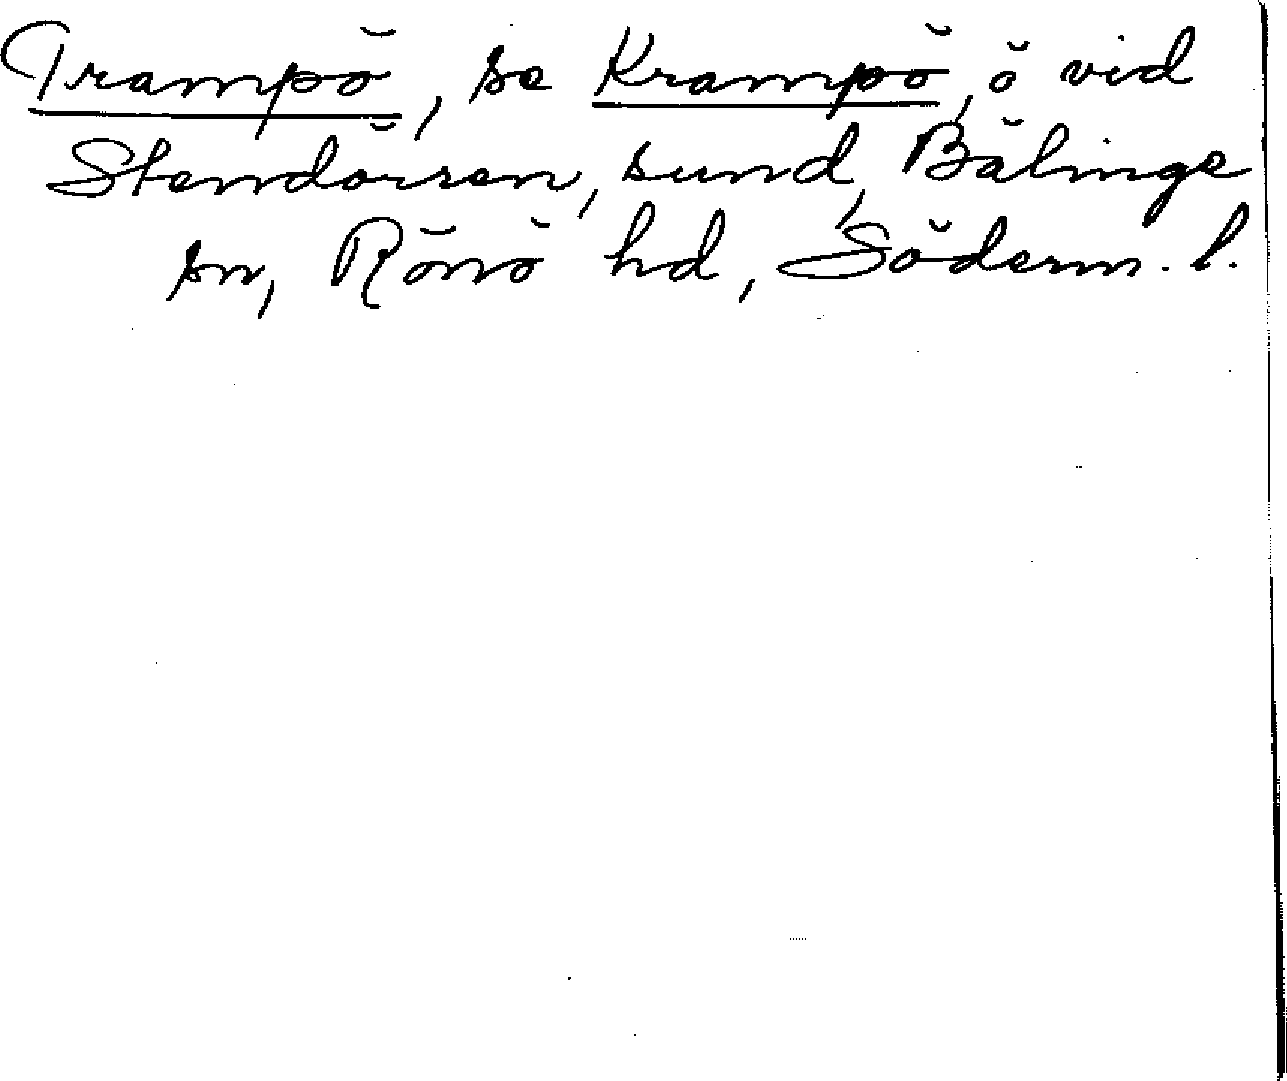 Trampö, se Krampö, ö vid
Stendörren, sund, Bälinge
sn, Rönö hd, Söderm. l.